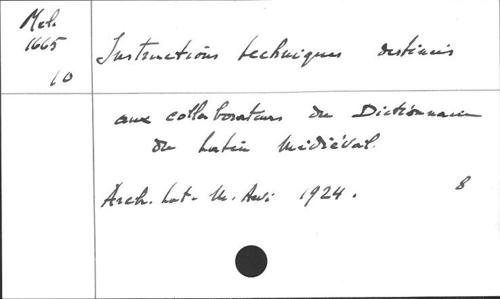 Mel.
1665
10
Instructions techniques destinées
aux collaborateurs du Dictionnaire
du Latin Médiéval.
Arch. Lat. M. Aevi 1924.
8